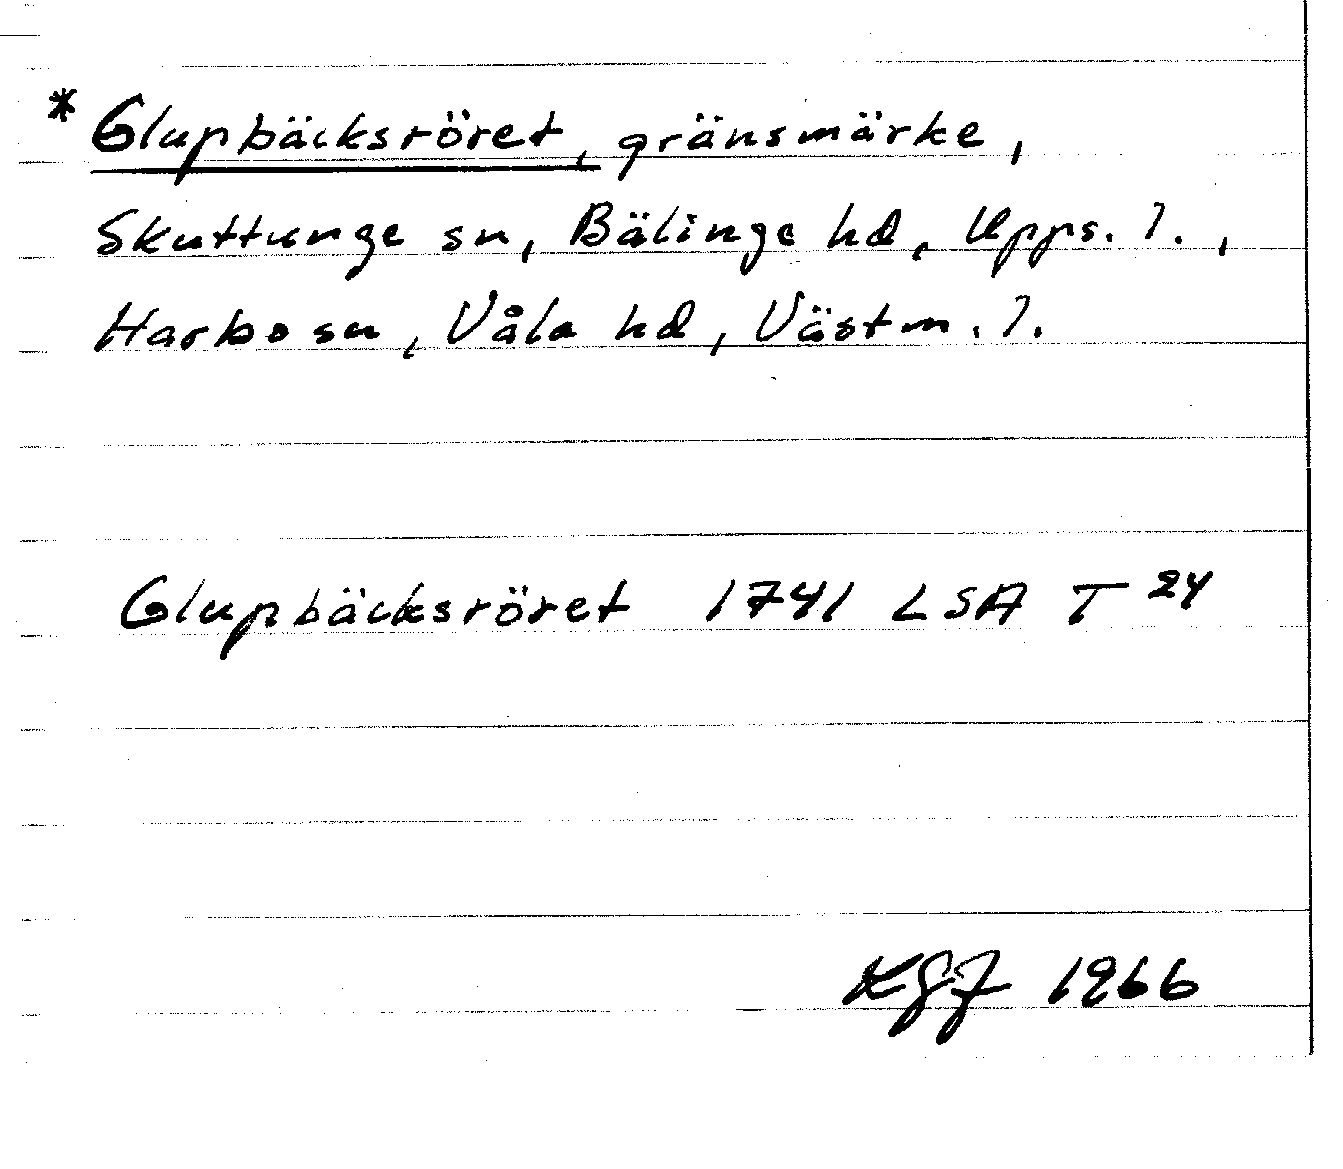 * Glupbäcksröret, gränsmärke,
Skuttunge sn, Bälinge hd, Upps. l.,
Harbo sn, Våla hd, Västm. l.
Glupbäcksröret 1741 LSA T 24
KGF 1966